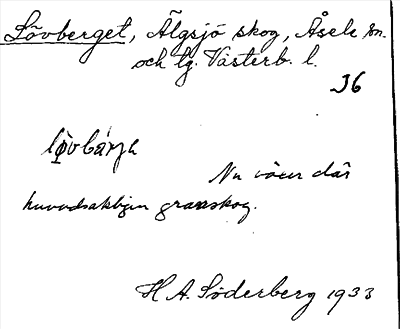 Lövberget, Älgsjö skog, Åsele sn.
och tg. Västerb. l.
36
Nu växer där
huvudsakligen granskog.
H A. Söderberg 1933